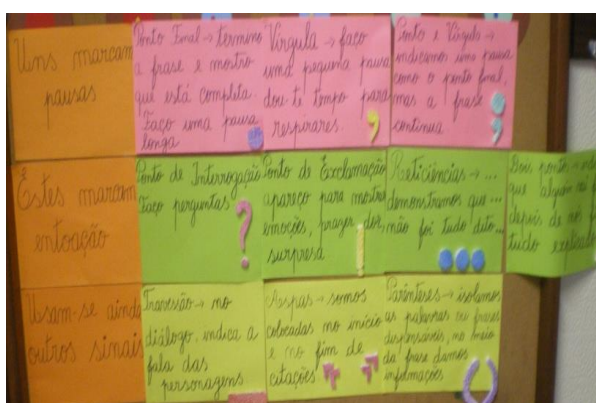 Uns marcam
pausas
Ponto Final → termino
a frase e mostro
que está completa.
Faço uma pausa
longa
Vírgula → faço
uma pequena pausa
dou-te tempo para
respirares.
,
Ponto e Vírgula →
indicamos uma pausa
como o ponto final,
mas a frase
continua
;
Estes marcam
entoação
Ponto de Interrogação
Faço perguntas
?
Ponto de Exclamação
apareço para mostrar
emoções, prazer, dor,
surpresa
!
Reticências → ...
demonstramos que ...
não foi tudo dito...
Dois pontos
que alguém
depois de nós
tudo explicado
Usam-se ainda
outros sinais
Travessão → no
diálogo, indica a
fala das
personagens
Aspas → somos
colocadas no início
e no fim de
citações
Parênteses → isolamos
as palavras ou frases
dispensáveis, no meio
da frase damos
informações
()